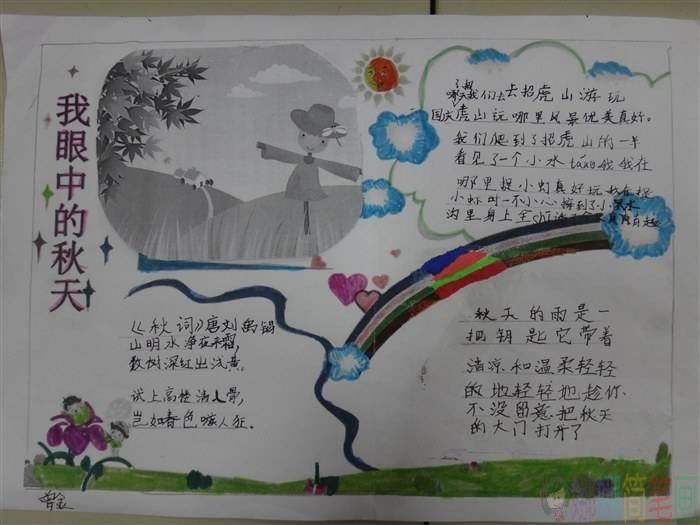 我眼中的秋天
我们去招虎山游玩
国庆虎山玩哪里风景优美真好。
我们爬到了招虎山的一半
看见了一个小水 我我在
哪里捉小虾真好玩我在捉
小虾时一不小心掉到了小水
沟里身上全
《秋词》唐刘禹锡
山明水净夜来霜，
数树深红出浅黄。
试上高楼清人骨，
岂如春色嗾人狂。
秋天的雨是一
把钥匙它带着
清凉和温柔轻轻
的地轻轻地趁你
不没留意把秋天
的大门打开了
简笔画